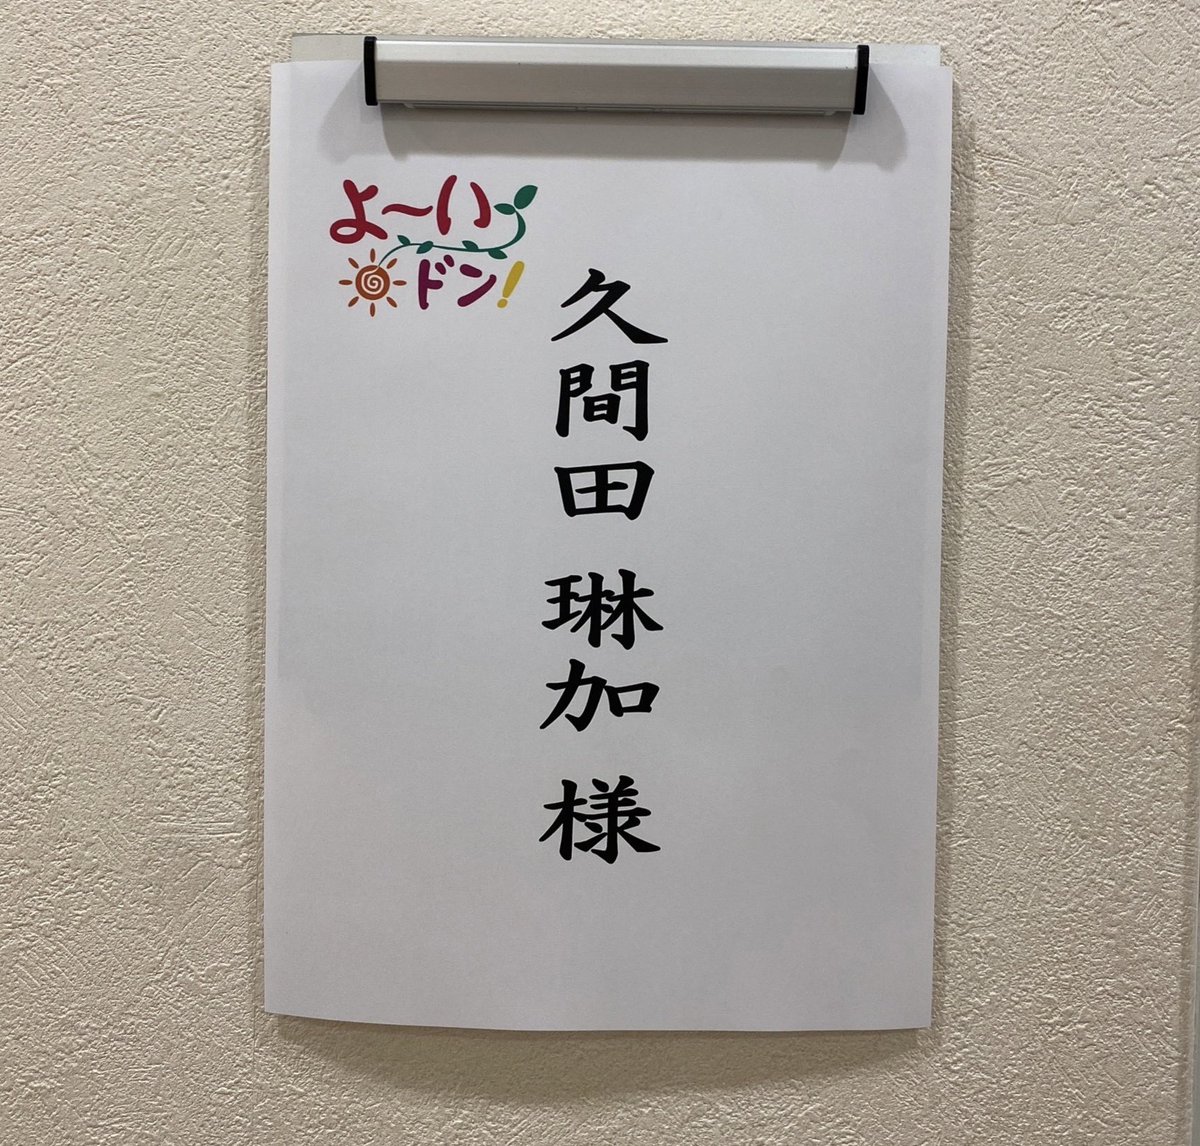 よ〜い
ドン!
久間田 琳加 様